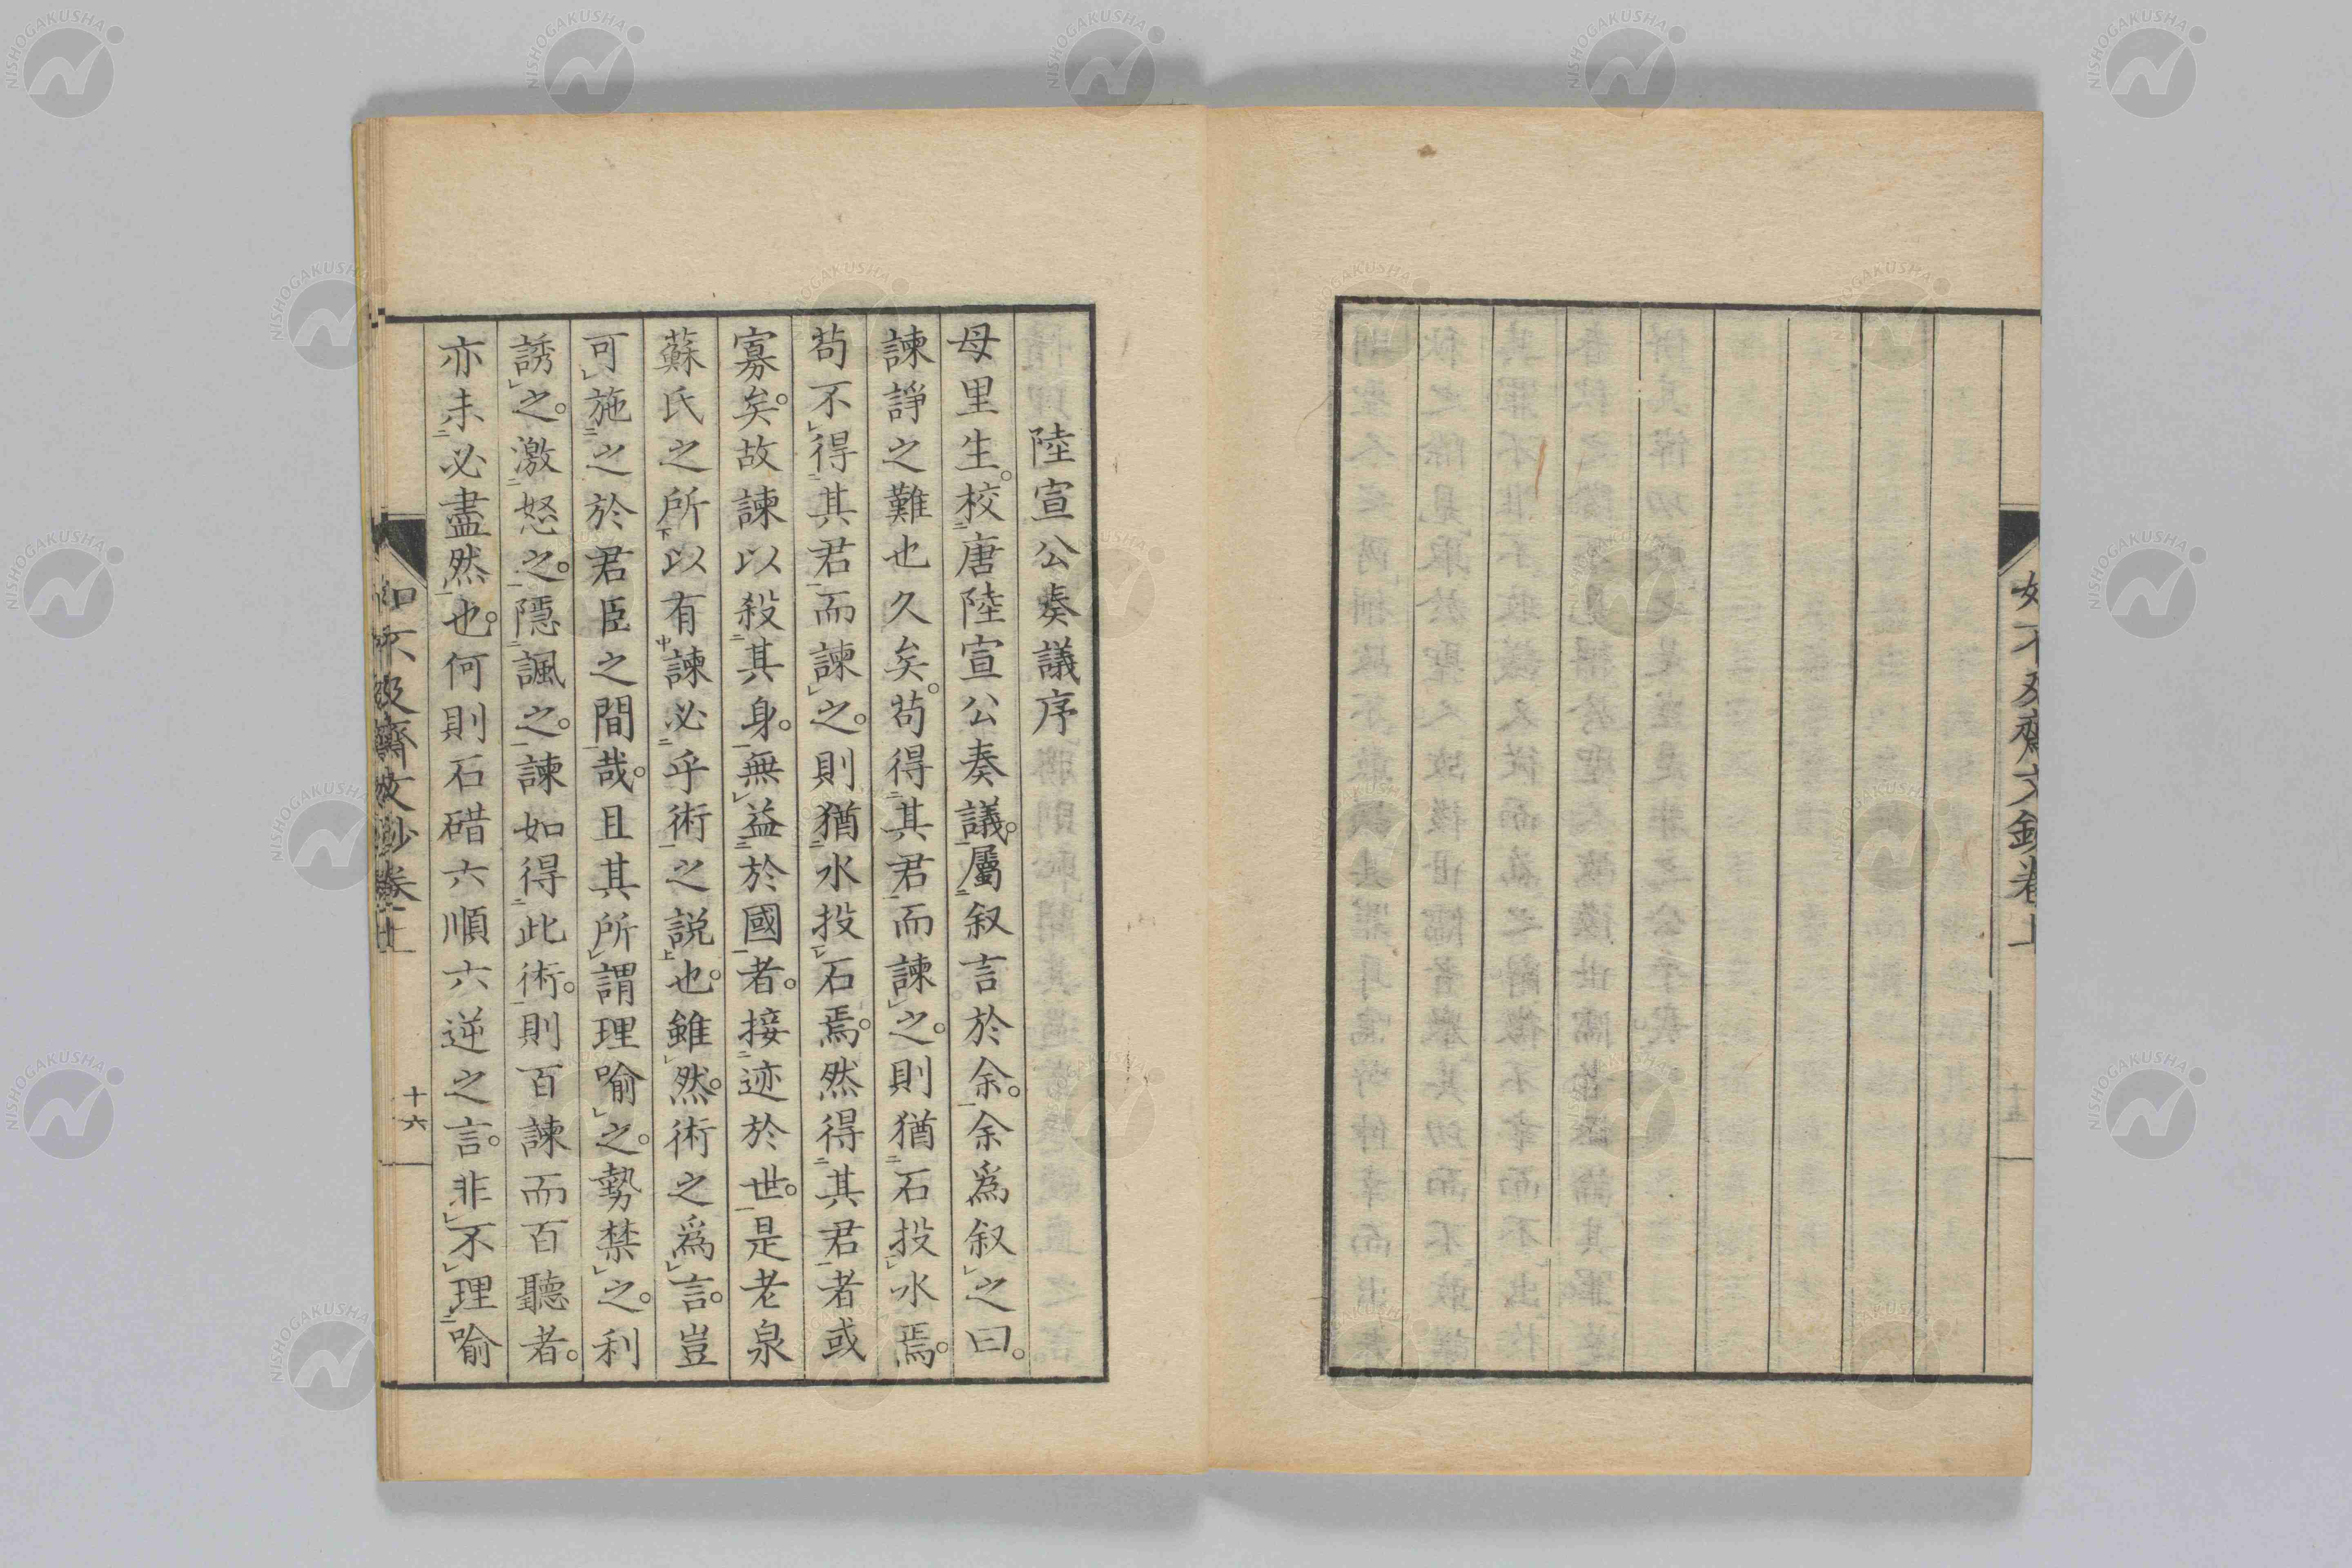 如不及齋文鈔卷上
陸宣公奏議序
母里生。校唐陸宣公奏議。屬叙言於余。余爲叙之曰。
諫諍之難也久矣。苟得其君而諫之。則猶石投水焉。
苟不得其君而諫之。則猶水投石焉。然得其君者或
寡矣。故諫以殺其身。無益於國者。接迹於世。是老泉
蘇氏之所以有諫必乎術之説也。雖然。術之爲言。豈
可施之於君臣之間哉。且其所謂理喻之。勢禁之。利
誘之。激怒之。隱諷之。諫如得此術。則百諫而百聽者。
亦未必盡然也。何則石碏六順六逆之言。非不理喻
十六
NISHOGAKUSHA